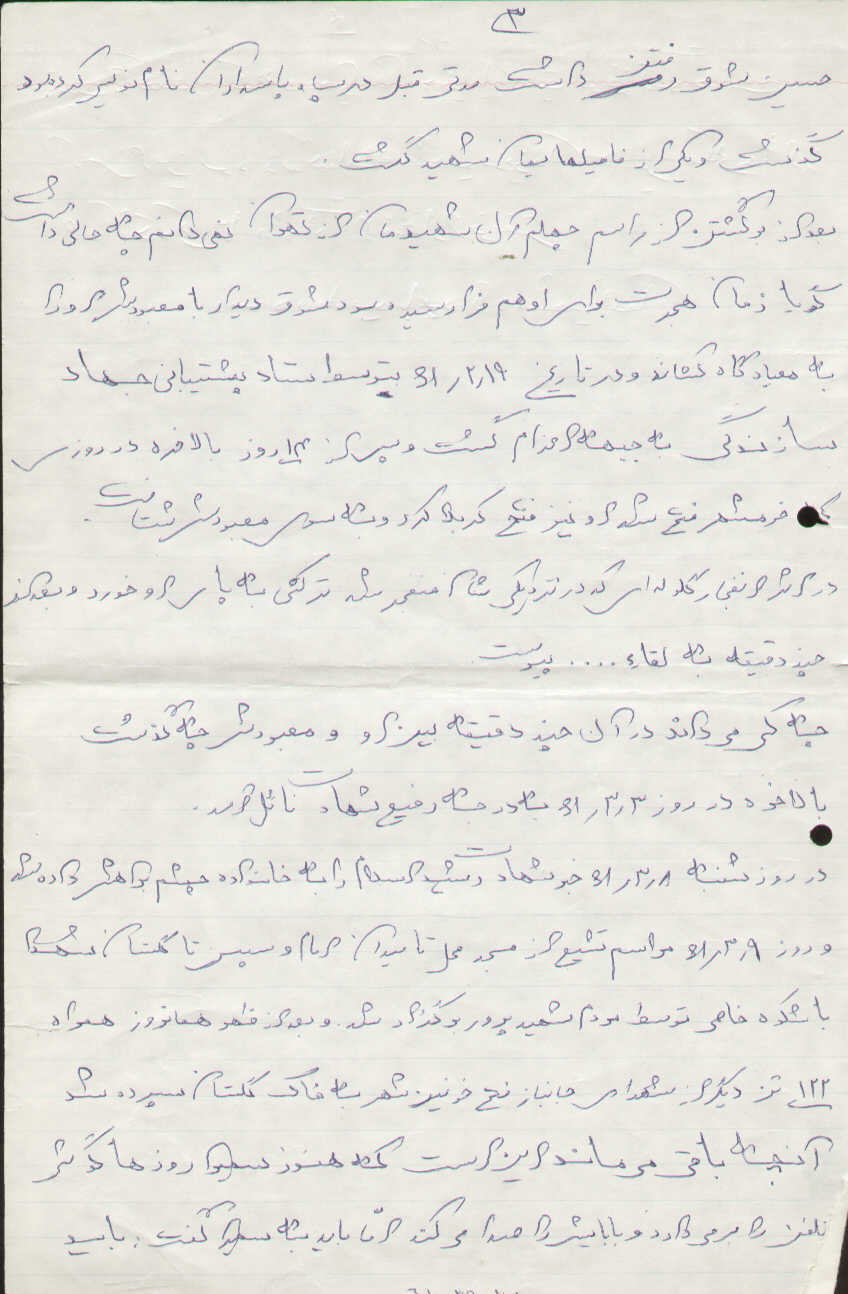 ۳
حسین شوق رفتن داشت مدتی قبل در سپاه پاسداران نام نویسی کرده بود
گذشت و یکی از فامیلهایمان شهید گشت .
بعد از برگشتن از مراسم چهلم آن شهیدمان از تهران نمی دانم چه حالی داشت
گویا زمان هجرت برای او هم فرا رسیده بود شوق دیدار با معبودش او را
به میعادگاه کشاند و در تاریخ ۶۱٫۲٫۱۹ بتوسط ستاد پشتیبانی جهاد
سازندگی به جبهه اعزام گشت و پس از ۱۴ روز بالاخره در روزی
که خرمشهر فتح شد او نیز فتح کربلا کرد و به سوی معبودش شتافت .
در اثر انفجار گلوله ای که در نزدیکی شان منفجر شد ترکشی به پای او خورد و بعد از
چند دقیقه به لقاء .... پیوست
چه کسی می داند در آن چند دقیقه بین او و معبودش چه گذشت
بالاخره در روز ۶۱٫۳٫۳ به درجه رفیع شهادت نائل آمد .
در روز شنبه ۶۱٫۳٫۸ خبر شهادت را به خانواده چشم براهش داده شد
و روز ۶۱٫۳٫۹ مراسم تشیع از مسجد محل تا میدان امام و سپس تا گلستان شهدا
با شکوه خاصی توسط مردم شهید پرور برگزار شد . و بعد از ظهر همانروز همراه
۱۲۲ تن دیگر از شهدای جانباز فتح خونین شهر به خاک گلستان سپرده شد
آنچه باقی می ماند این است که هنوز روزها گوشی
تلفن را برمی دارد و بابایش را صدا می کند امّا باید به گفت : بابای